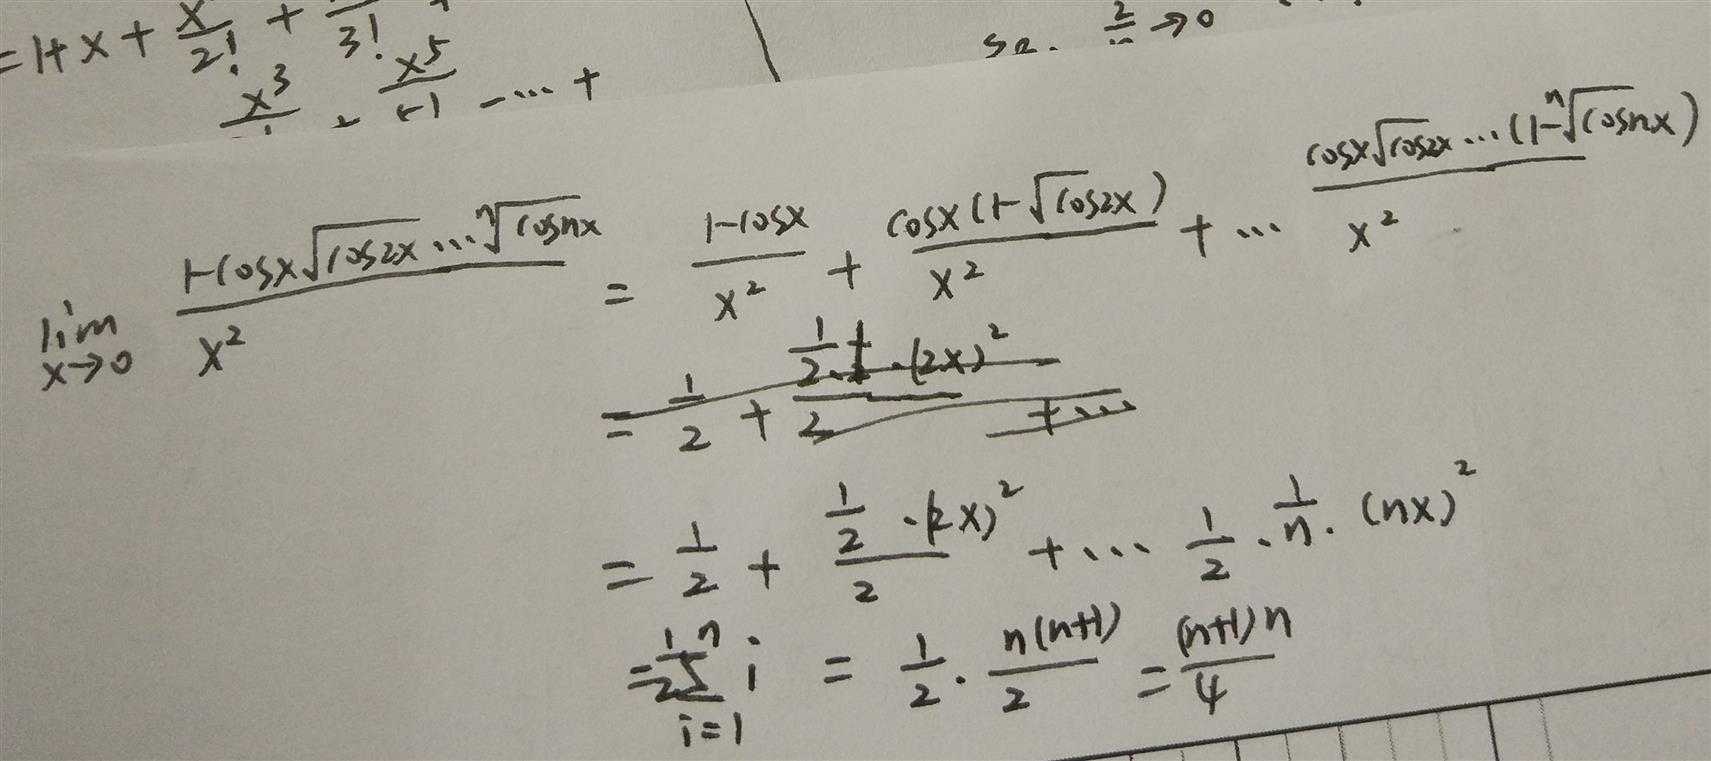 = 1 + x + x/2! + /3! +
x^3/ - x^5/ - ... +
→ 0
lim x→0 (1-cosx√cos2x ... ⁿ√cosnx)/x² = (1-cosx)/x² + cosx(1-√cos2x)/x² + ... cosx√cos2x ... (1-ⁿ√cosnx)/x²
= 1/2 + (1/2 · (2x)²)/2 + ... 1/2 · 1/n · (nx)²
= 1/2 Σ_{i=1}^{n} i = 1/2 · n(n+1)/2 = (n+1)n/4